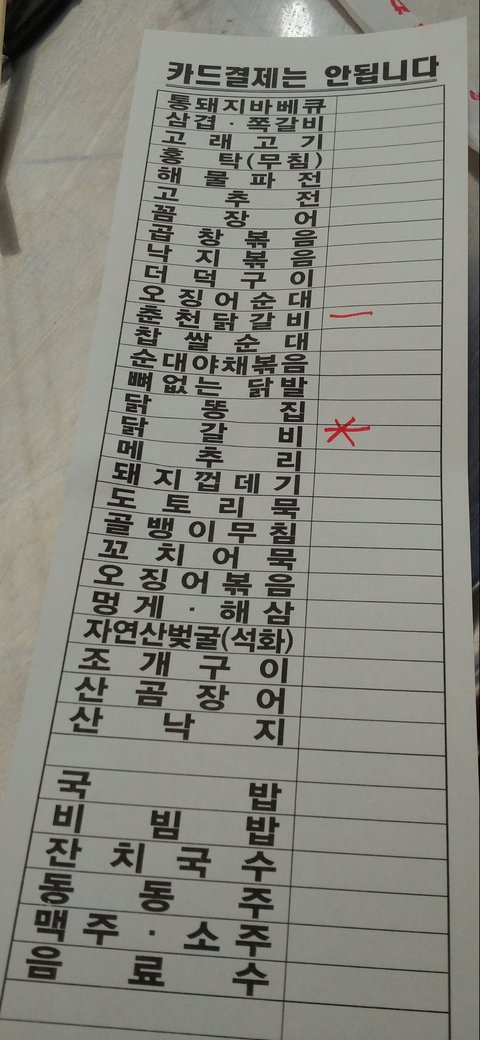 카드결제는 안됩니다
통돼지바베큐
삼겹·쪽갈비
고래고기
홍탁(무침)
해물파전
고추전
꼼장어
곱창볶음
낙지볶음
더덕구이
오징어순대
춘천닭갈비
찹쌀순대
순대야채볶음
뼈없는 닭발
닭똥집
닭갈비
메추리
돼지껍데기
도토리묵
골뱅이무침
꼬치어묵
오징어볶음
멍게·해삼
자연산벚굴(석화)
조개구이
산곰장어
산낙지
국밥
비빔밥
잔치국수
동동주
맥주·소주
음료수